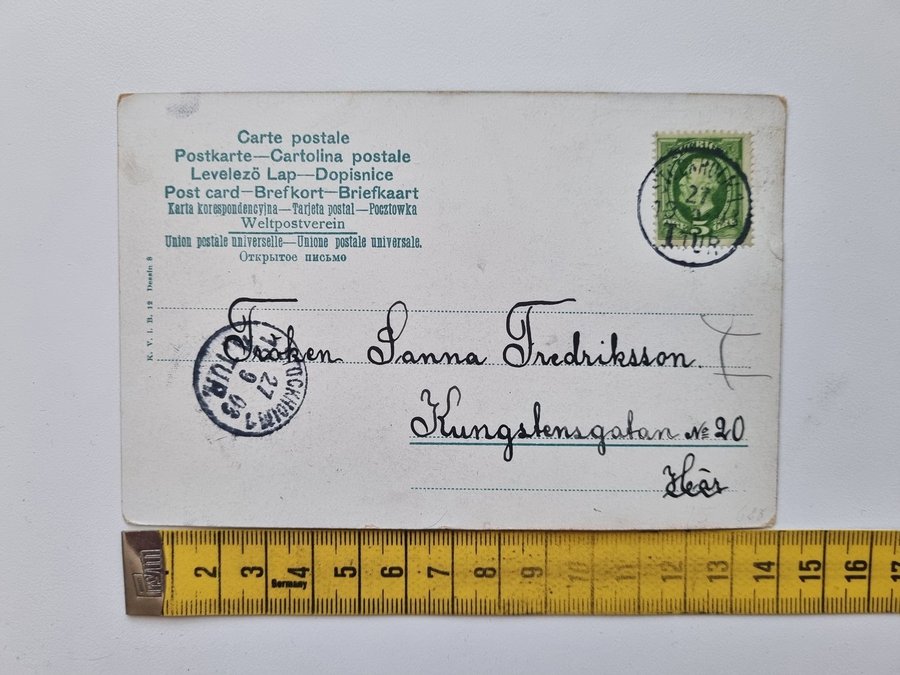 Carte postale
Postkarte—Cartolina postale
Levelező Lap—Dopisnice
Post card—Brefkort—Briefkaart
Karta korespondencyjna—Tarjeta postal—Pocztowka
Weltpostverein
Union postale universelle—Unione postale universale.
Открытое письмо
K. V. i. B. 12 Dessin 8
27
5
TUR
Fröken Sanna Fredriksson.
Kungstensgatan № 20
Här
STOCKHOLM 1
27
9 03
TUR
2 3 4 5 6 7 8 9 10 11 12 13 14 15 16 17
Germany